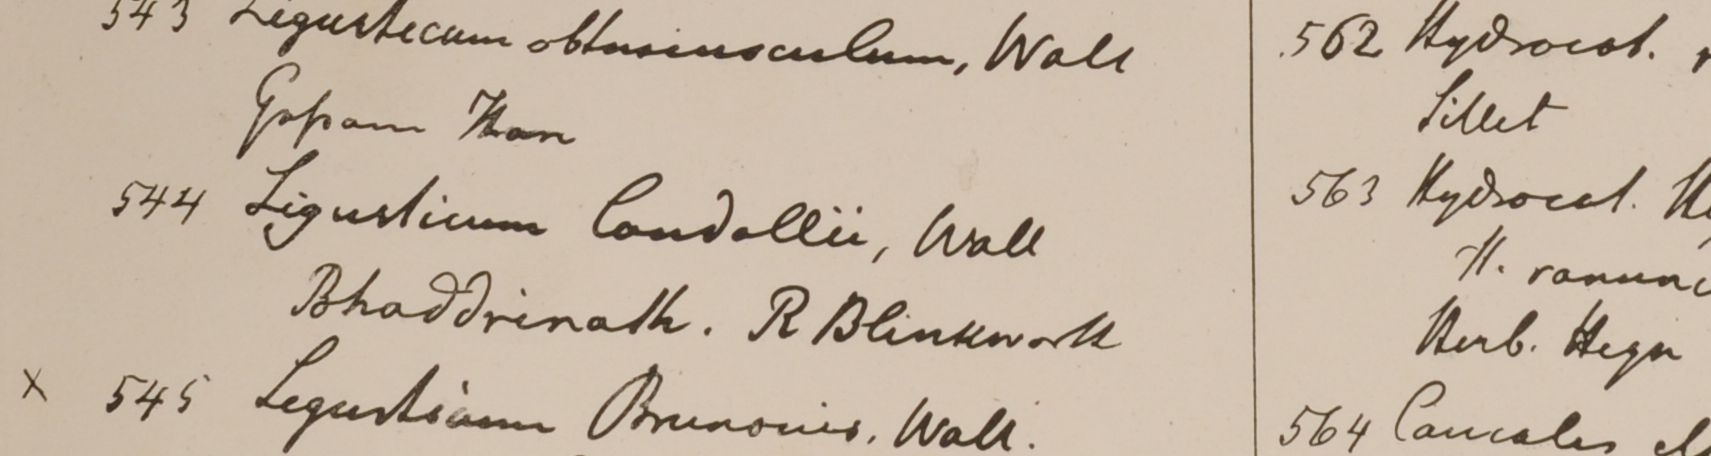 543 Ligusticum obtusiusculum, Wall
Gossam Than
544 Ligusticum Candollii, Wall
Bhaddrinath. R Blinkworth
x 545 Ligusticum Brunonis. Wall.
562 Hydrocot.
Sillet
563 Hydrocot.
H. ranunc
Herb. Heyn
564 Caucalis